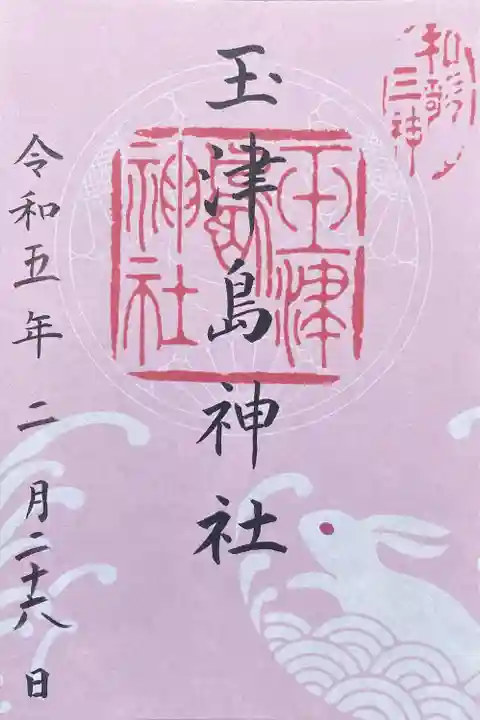 和歌
三神
玉津島神社
玉津
神社
令和五年二月二十六日